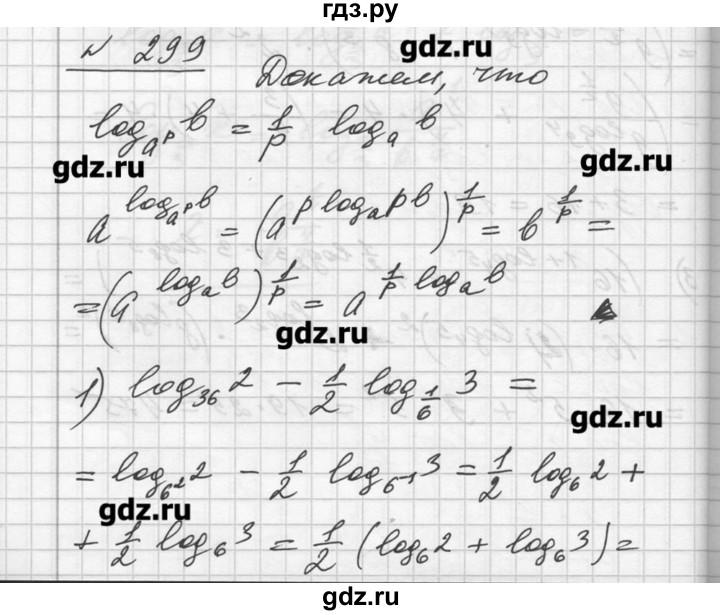 гдз.ру
№ 299 gdz.ru
Докажем, что
log_{a^p} b = 1/p log_a b
gdz.ru gdz.ru
a^{log_{a^p} b} = (a^{p log_{a^p} b})^{1/p} = b^{1/p} =
= (a^{log_a b})^{1/p} = a^{1/p log_a b}
gdz.ru
1) log_{36} 2 − 1/2 log_{1/6} 3 =
gdz.ru
= log_{6^2} 2 − 1/2 log_{6^{-1}} 3 = 1/2 log_6 2 +
gdz.ru
+ 1/2 log_6 3 = 1/2 (log_6 2 + log_6 3) =
gdz.ru